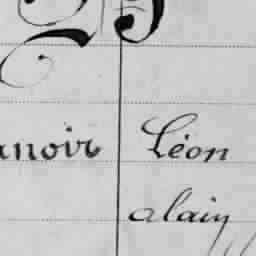 anoir Léon
alain